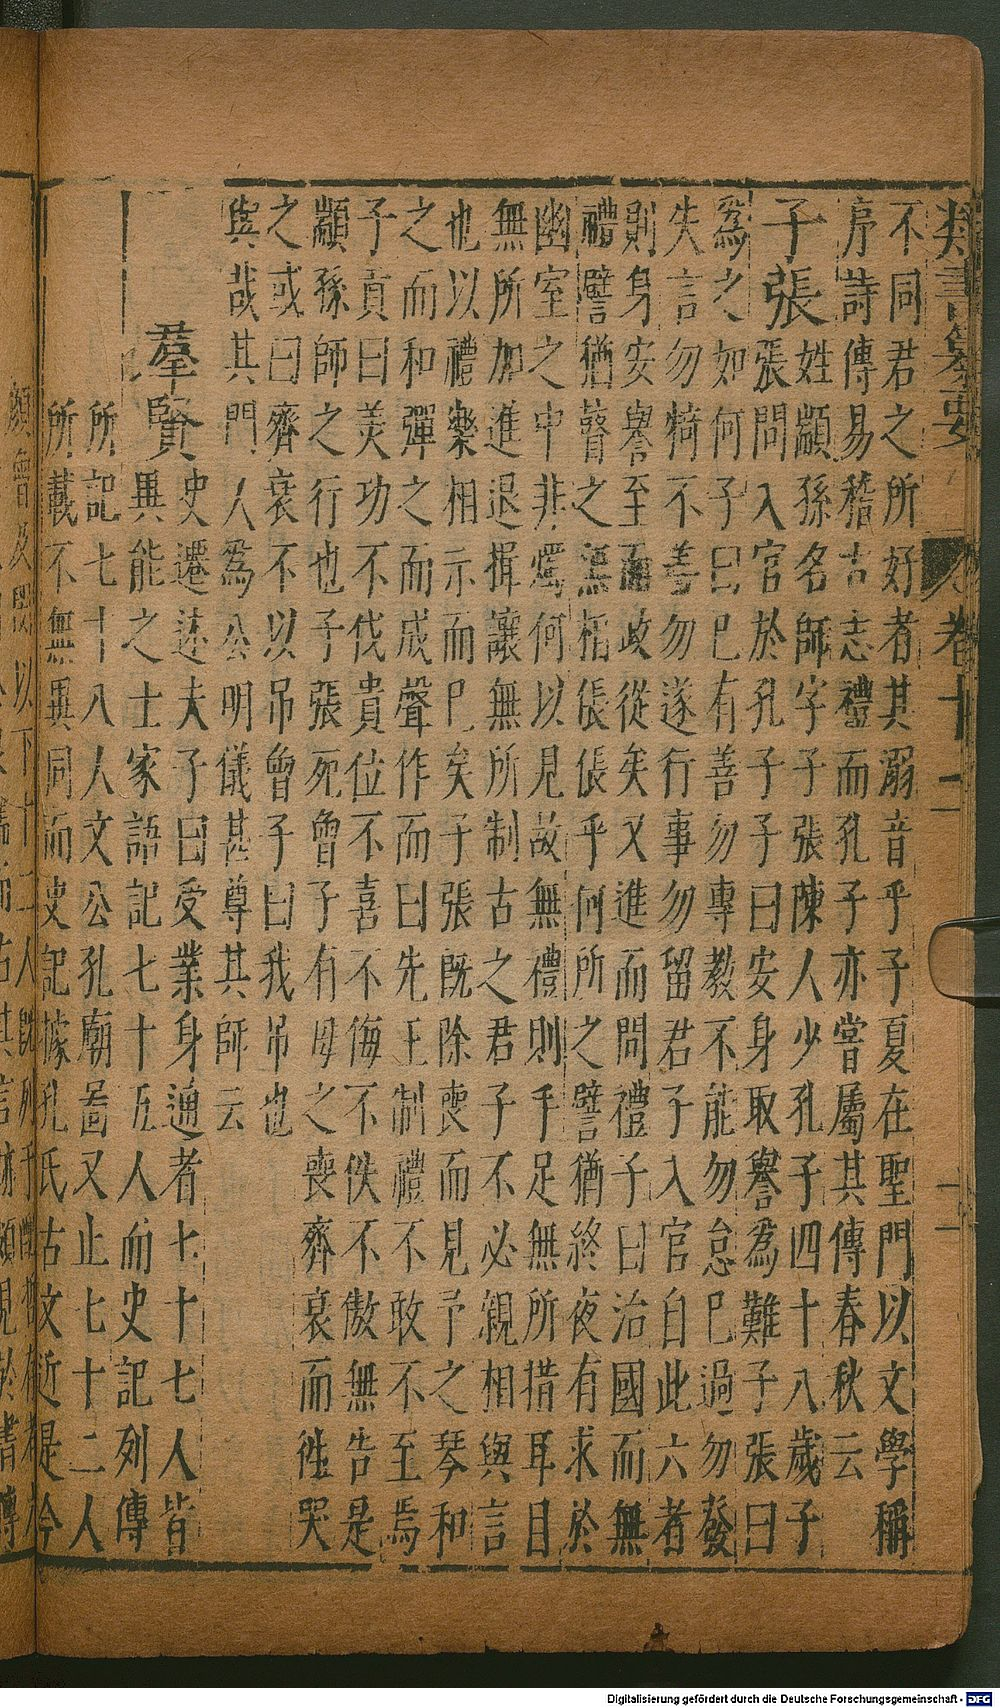 類書纂要
卷十二
不同君之所好者其溺音乎子夏在聖門以文學稱
序詩傳易稽古志禮而孔子亦嘗屬其傳春秋云
子張姓顓孫名師字子張陳人少孔子四十八歲子
張問入官於孔子子曰安身取譽為難子張曰
為之如何子曰已有善勿專教不能勿怠已過勿發
失言勿犄不善勿遂行事勿留君子入官自此六者
則身安譽至而政從矣又進而問禮子曰治國而無
禮譬猶瞽之無相倀倀乎何所之譬猶終夜有求於
幽室之中非燭何以見故無禮則手足無所措耳目
無所加進退揖讓無所制古之君子不必親相與言
也以禮樂相示而已矣子張既除喪而見予之琴和
之而和彈之而成聲作而曰先王制禮不敢不至焉
子貢曰美功不伐貴位不喜不侮不佚不傲無告是
顓孫師之行也子張死曾子有母之喪齊衰而往哭
之或曰齊衰不以吊曾子曰我吊也
與哉其門人為公明儀甚尊其師云
羣賢
史遷述夫子曰受業身通者七十七人皆
異能之士家語記七十五人而史記列傳
所記七十八人文公孔廟啚又止七十二人
所載不無異同而史記據孔氏古文近是今
顏曾及閔以下十二人既列于
Digitalisierung gefördert durch die Deutsche Forschungsgemeinschaft - DFG